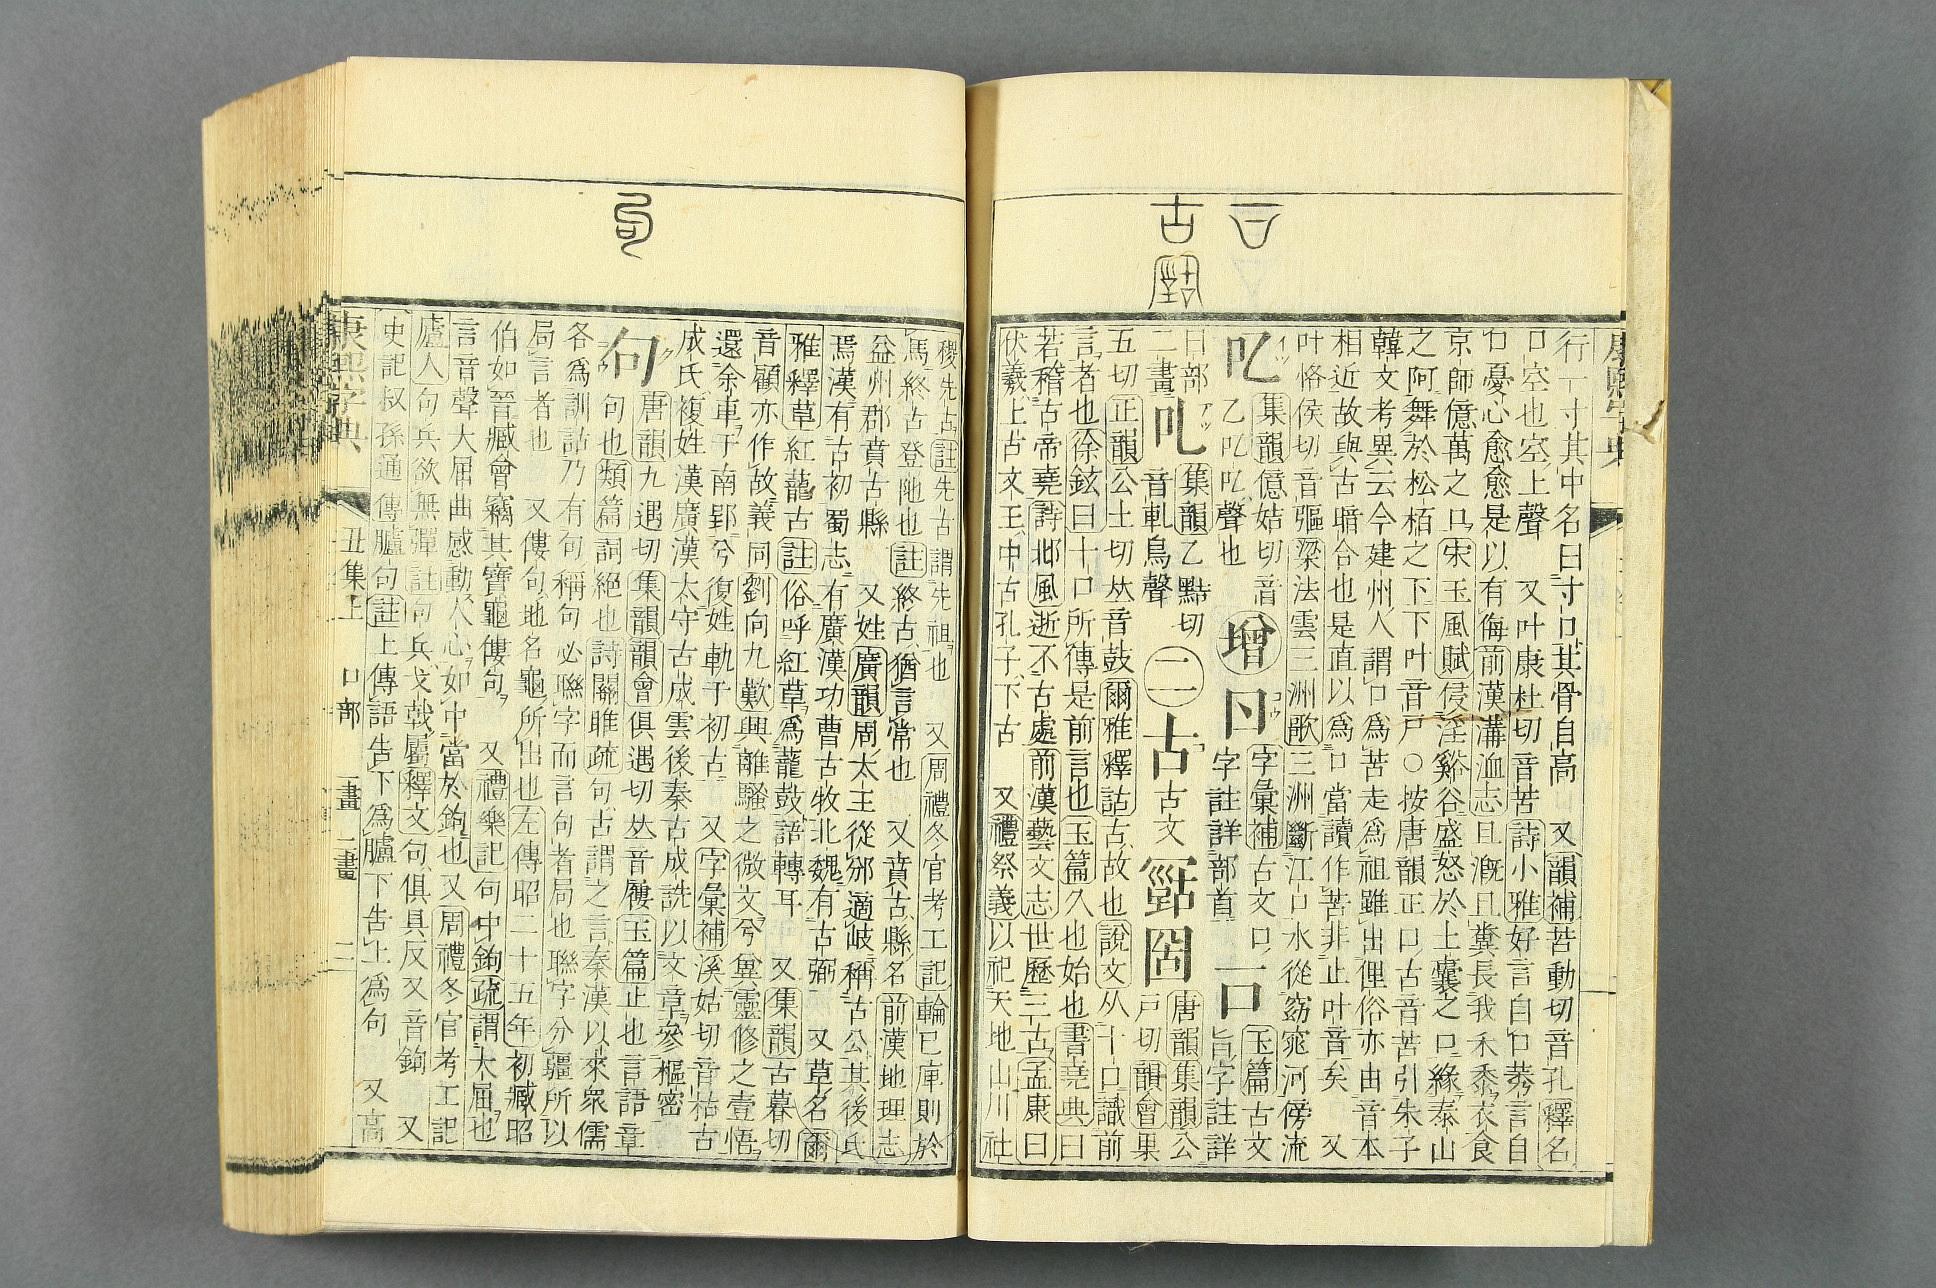 古
康熙字典
行一寸其中名曰寸口其骨自高 又韻補苦動切音孔釋名
口空也空上聲 又叶康杜切音苦詩小雅好言自口莠言自
口憂心愈愈是以有侮前漢溝洫志且漑且糞長我禾黍衣食
京師億萬之口宋玉風賦侵淫谿谷盛怒於土囊之口緣泰山
之阿舞於松栢之下下叶音戸○按唐韻正口古音苦引朱子
韓文考異云今建州人謂口爲苦走爲祖雖出俚俗亦由音本
相近故與古暗合也是直以爲口當讀作苦非止叶音矣 又
叶恪侯切音彄梁法雲三洲歌三洲斷江口水從窈窕河傍流
𠮙 集韻億姞切音乙𠮙𠮙聲也 增 𠙵 字彙補古文口字註詳部首 𠮛 玉篇古文旨字註詳
日部二畫 集韻乙黠切音軋鳥聲 二 古 古文 𠖠 唐韻集韻公戸切韻會果
五切正韻公土切𠀤音鼓爾雅釋詁古故也說文从十口識前
言者也徐鉉曰十口所傳是前言也玉篇久也始也書堯典曰
若稽古帝堯詩邶風逝不古處前漢藝文志世歷三古孟康曰
伏羲上古文王中古孔子下古 又禮祭義以祀天地山川社
句
稷先古註先古謂先祖也 又周禮冬官考工記輪已庳則於
馬終古登阤也註終古猶言常也 又賁古縣名前漢地理志
益州郡賁古縣 又姓廣韻周太王從邠適岐稱古公其後氏
焉漢有古初蜀志有廣漢功曹古牧北魏有古弼 又草名爾
雅釋草紅蘢古註俗呼紅草爲蘢鼓語轉耳 又集韻古暮切
音顧亦作故義同劉向九歎興離騷之微文兮冀靈修之壹悟
還余車于南郢兮復往軌于初古 又字彙補溪姑切音枯古
成氏複姓漢廣漢太守古成雲後秦古成詵以文章參樞密
句 唐韻九遇切集韻韻會俱遇切𠀤音屨玉篇止也言語章句也類篇詞絕也詩關雎疏句古謂之言秦漢以來衆儒
各爲訓詁乃有句稱句必聯字而言句者局也聯字分疆所以
局言者也 又僂句地名龜所出也左傳昭二十五年初臧昭
伯如晉臧會竊其寶龜僂句 又禮樂記句中鉤疏謂大屈也
言音聲大屈曲感動人心如中當於鉤也又周禮冬官考工記
廬人句兵欲無彈註句兵戈戟屬釋文句俱具反又音鉤 又
史記叔孫通傳臚句註上傳語告下爲臚下告上爲句 又高
康熙字典 丑集上 口部 一畫 二畫 二